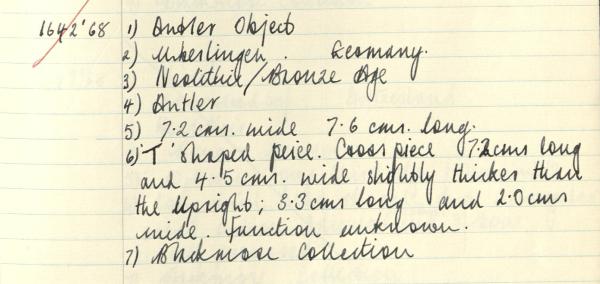 1642'68 1) Antler Object
2) Uberlingen. Germany.
3) Neolithic/Bronze Age
4) Antler
5) 7.2 cms. wide 7.6 cms. long.
6) 'T' shaped peice. Cross piece 7.2cms long
and 4.5 cms. wide slightly thicker than
the upright; 3.3 cms long and 2.0 cms
wide. Function unknown.
7) Blackmore Collection